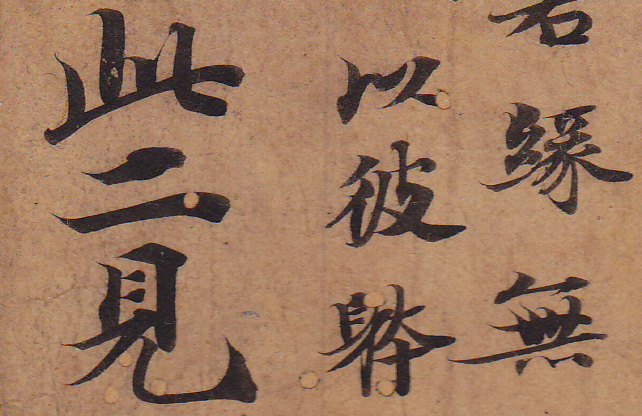 若緣無
以彼
此二見